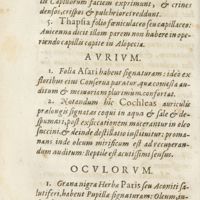 in Capillorum faciem exprimunt, & crines
densos, crispos & pulchriores reddunt.
5. Thapsia folio fœniculaceo seu capillaceo:
Auicenna dicit illam parem non habere in ope-
riendo capilli capite in Alopecia.
AVRIVM.
1. Folia Asari habent signaturam: ideò ex
floribus eius Conserua paratur, quæ comesta au-
ditum & memoriam plurimùm confortat.
2. Notandum hic Cochleas auriculis
prælongis signatas coqui in aqua & sale & de-
spumari, post exsiccationem macerantur in oleo
succini, & deinde destillatio instituitur: proma-
nans inde oleum mirificum est ad recuperan-
dum auditum: Reptile est acutissimi sensus.
OCVLORVM.
1. Grana nigra Herbæ Paris seu Aconiti sa-
lutiferi, habent Pupillæ signaturam: Oleum au-